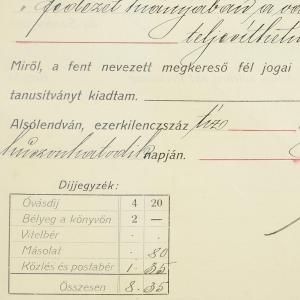 fedezet hiányában a vá
teljesíthető
Miről, a fent nevezett megkereső fél jogai
tanusitványt kiadtam.
Alsólendván, ezerkilenczszáz tizo
huszonhatodik napján.
Díjjegyzék:
Óvásdíj 4 20
Bélyeg a könyvön 2 —
Vitelbér . .
Másolat . 80
Közlés és postabér 1 · 35
Összesen 8 · 35